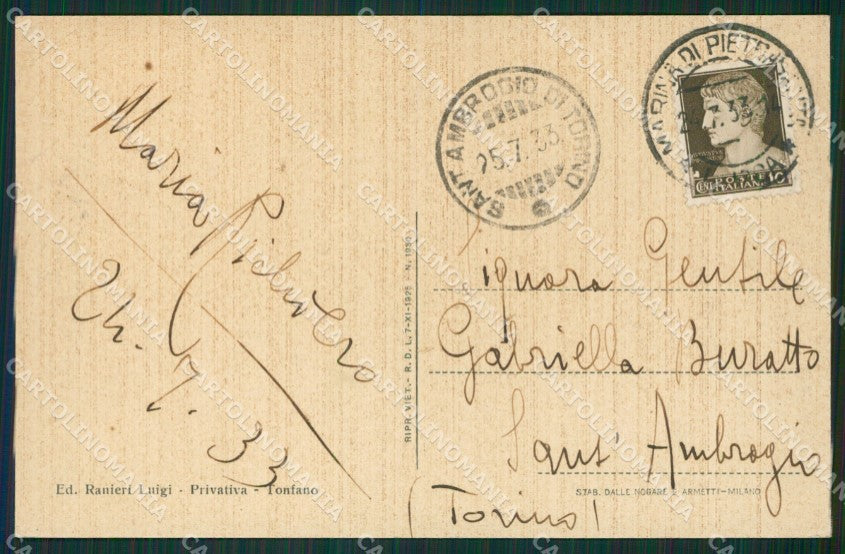 Maria
24. 7. 33
Ed. Ranieri Luigi - Privativa - Tonfano
RIPR. VIET. - R. D. L. 7-XI-1925 - N. 1950
SANT'AMBROGIO DI TORINO
25.7.33
MARINA DI PIETRASANTA
7.33
CENT. POSTE ITALIANE 10
Signora Gentile
Gabriella Buratto
Sant' Ambrogio
(Torino)
STAB. DALLE NOGARE E ARMETTI-MILANO
CARTOLINOMANIA